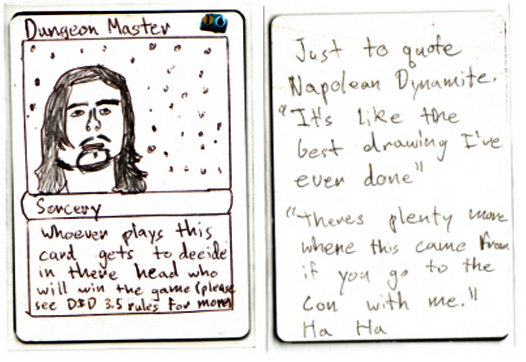 Dungeon Master
Sorcery
Whoever plays this
card gets to decide
in there head who
will win the game (please
see D&D 3.5 rules for more)
Just to quote
Napolean Dynamite.
"It's like the
best drawing I've
ever done"
"Theres plenty more
where this came from
if you go to the
con with me."
Ha Ha